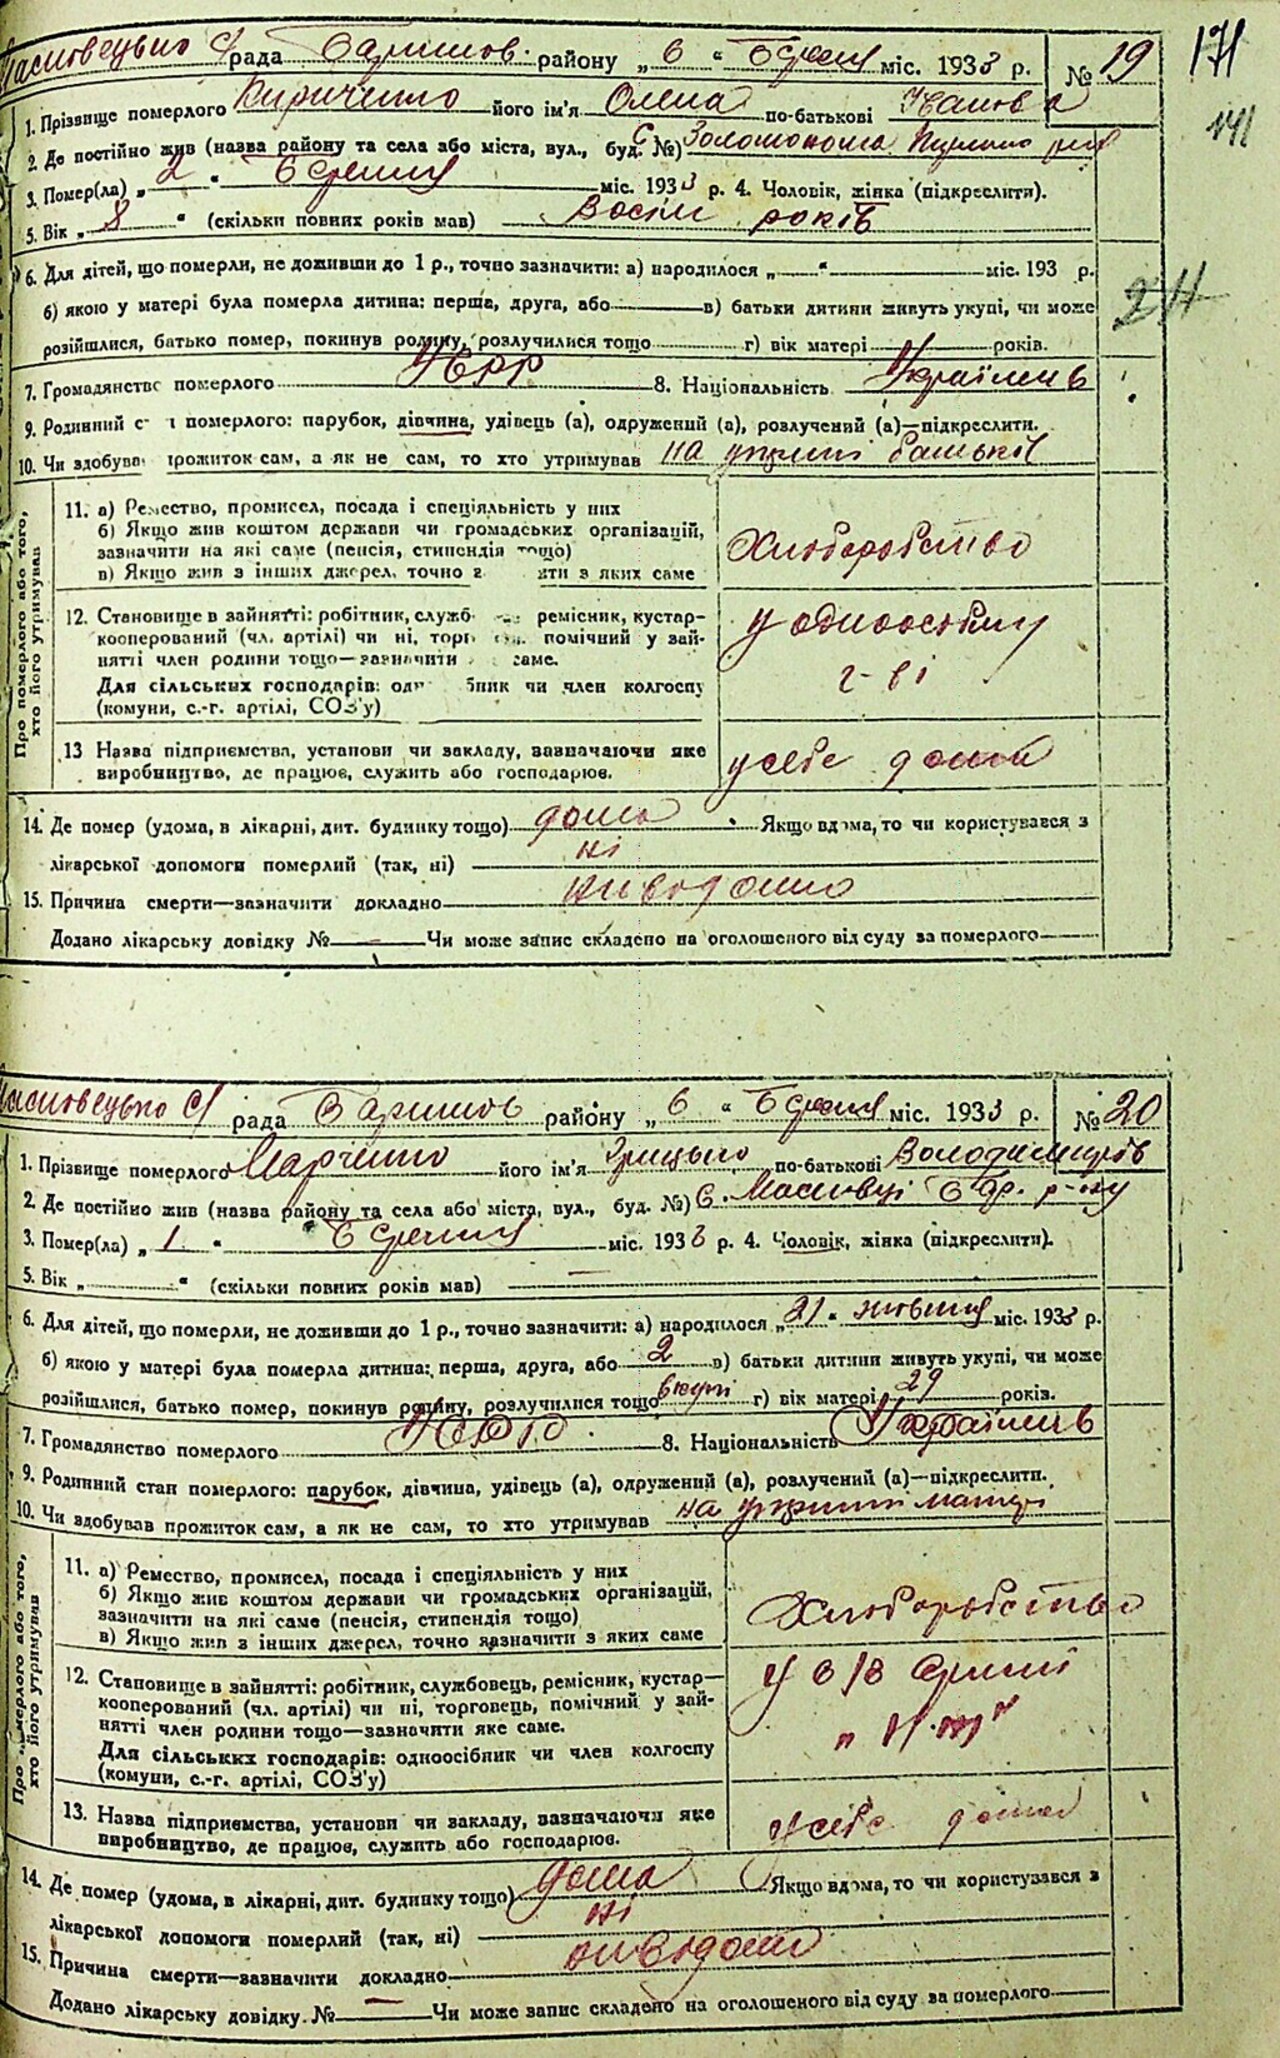 рада Баришов. району „ 6 “ Березня міс. 1933 р. № 19
171
1. Прізвище померлого Кириченко його ім'я Олена по-батькові Іванов а
141
2. Де постійно жив (назва району та села або міста, вул., буд. №) С. Золотоноша
3. Помер(ла) „ 2 “ Березня міс. 1933 р. 4. Чоловік, жінка (підкреслити).
5. Вік „ 8 “ (скільки повних років мав) Восім років
6. Для дітей, що померли, не доживши до 1 р., точно зазначити: а) народилося „ “ міс. 193 р.
б) якою у матері була померла дитина: перша, друга, або в) батьки дитини живуть укупі, чи може
розійшлися, батько помер, покинув родину, розлучилися тощо г) вік матері років.
7. Громадянство померлого УСРР 8. Національність Українців
9. Родинний с померлого: парубок, дівчина, удівець (а), одружений (а), розлучений (а)—підкреслити.
10. Чи здобува прожиток сам, а як не сам, то хто утримував на утрим батьків
Про померлого або того, хто його утримував
11. а) Ремество, промисел, посада і спеціяльність у них
б) Якщо жив коштом держави чи громадських організацій,
зазначити на які саме (пенсія, стипендія тощо)
в) Якщо жив з інших джерел, точно з ити з яких саме
Хліборобство
12. Становище в зайнятті: робітник, служб ремісник, кустар-
кооперований (чл. артілі) чи ні, торг помічний у зай-
нятті член родини тощо—зазначити саме.
Для сільських господарів: од бник чи член колгоспу
(комуни, с.-г. артілі, СОЗ'у)
у одноосібному
г-ві
13 Назва підприємства, установи чи закладу, зазначаючи яке
виробництво, де працює, служить або господарює.
у себе дома
14. Де помер (удома, в лікарні, дит. будинку тощо) дома Якщо вдома, то чи користувався з
лікарської допомоги померлий (так, ні) ні
15. Причина смерти—зазначити докладно невідомо
Додано лікарську довідку № — Чи може запис складено на оголошеного від суду за померлого
рада Баришов району „ 6 “ Березня міс. 1933 р. № 20
1. Прізвище померлого Марченко його ім'я Грицько по-батькові Володимирів
2. Де постійно жив (назва району та села або міста, вул., буд. №) С. Масківці Бар. р-ну
3. Помер(ла) „ 1 “ Березня міс. 1933 р. 4. Чоловік, жінка (підкреслити).
5. Вік „ “ (скільки повних років мав) —
6. Для дітей, що померли, не доживши до 1 р., точно зазначити: а) народилося „ 21 “ жовтня міс. 1933 р.
б) якою у матері була померла дитина: перша, друга, або 2 в) батьки дитини живуть укупі, чи може
розійшлися, батько помер, покинув родину, розлучилися тощо вкупі г) вік матері 29 років.
7. Громадянство померлого 8. Національність Українців
9. Родинний стан померлого: парубок, дівчина, удівець (а), одружений (а), розлучений (а)—підкреслити.
10. Чи здобував прожиток сам, а як не сам, то хто утримував на утрим матері
Про померлого або того, хто його утримував
11. а) Ремество, промисел, посада і спеціяльність у них
б) Якщо жив коштом держави чи громадських організацій,
зазначити на які саме (пенсія, стипендія тощо)
в) Якщо жив з інших джерел, точно зазначити з яких саме
Хліборобство
12. Становище в зайнятті: робітник, службовець, ремісник, кустар—
кооперований (чл. артілі) чи ні, торговець, помічний у зай-
нятті член родини тощо—зазначити яке саме.
Для сільських господарів: одноосібник чи член колгоспу
(комуни, с.-г. артілі, СОЗ'у)
13. Назва підприємства, установи чи закладу, зазначаючи яке
виробництво, де працює, служить або господарює.
у себе дома
14. Де помер (удома, в лікарні, дит. будинку тощо) дома Якщо вдома, то чи користувався з
лікарської допомоги померлий (так, ні) ні
15. Причина смерти—зазначити докладно невідомо
Додано лікарську довідку № — Чи може запис складено на оголошеного від суду за померлого